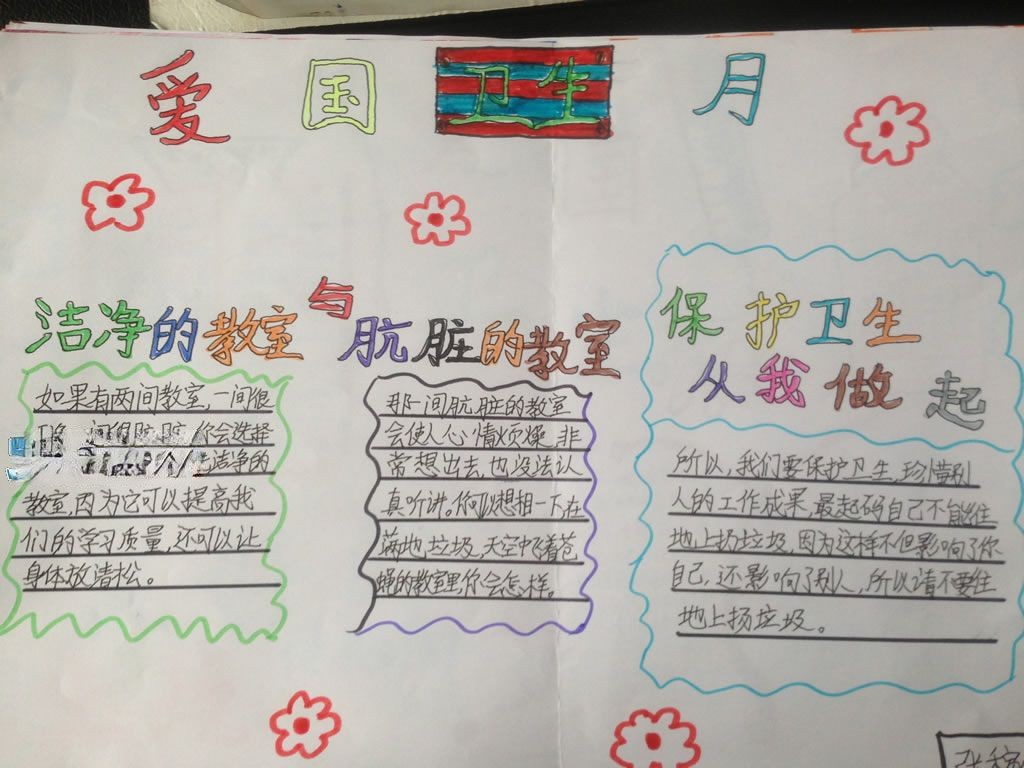 爱国卫生月
洁净的教室与肮脏的教室
如果有两间教室，一间很
间很肮脏，你会选择
个人选洁净的
教室，因为它可以提高我
们的学习质量，还可以让
身体放清松。
那一间肮脏的教室
会使人心情烦燥，非
常想出去，也没法认
真听讲。你可以想相一下在
满地垃圾，天空中飞着苍
蝇的教室里你会怎样。
保护卫生
从我做起
所以，我们要保护卫生，珍惜别
人的工作成果，最起码自己不能往
地上扬垃圾，因为这样不但影响了你
自己，还影响了别人，所以请不要往
地上扬垃圾。
张